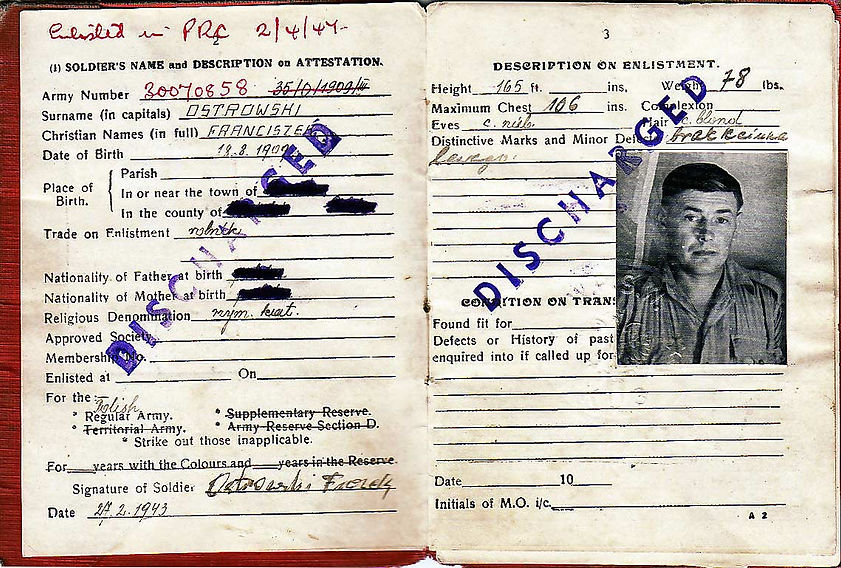 Enlisted in PRC 2/4/47-
(1) SOLDIER'S NAME and DESCRIPTION on ATTESTATION.
Army Number 30070858
Surname (in capitals) OSTROWSKI
Christian Names (in full) FRANCISZEK
Date of Birth
Place of Birth.
Parish
In or near the town of
In the county of
Trade on Enlistment
Nationality of Father at birth
Nationality of Mother at birth
Religious Denomination rzym. kat.
Approved Society
Membership No.
Enlisted at On
For the:- Polish
* Regular Army. * Supplementary Reserve.
* Territorial Army. * Army Reserve Section D.
* Strike out those inapplicable.
For years with the Colours and years in the Reserve.
Signature of Soldier Ostrowski
Date 27.2.1943
DISCHARGED
3
DESCRIPTION ON ENLISTMENT.
Height 165 ft. ins. Weight 78 lbs.
Maximum Chest 106 ins. Complexion
Eyes c. nieb. Hair c. blond
Distinctive Marks and Minor Defects
DISCHARGED
CONDITION ON TRANS
Found fit for
Defects or History of past
enquired into if called up for
Date 10
Initials of M.O. i/c.
A 2